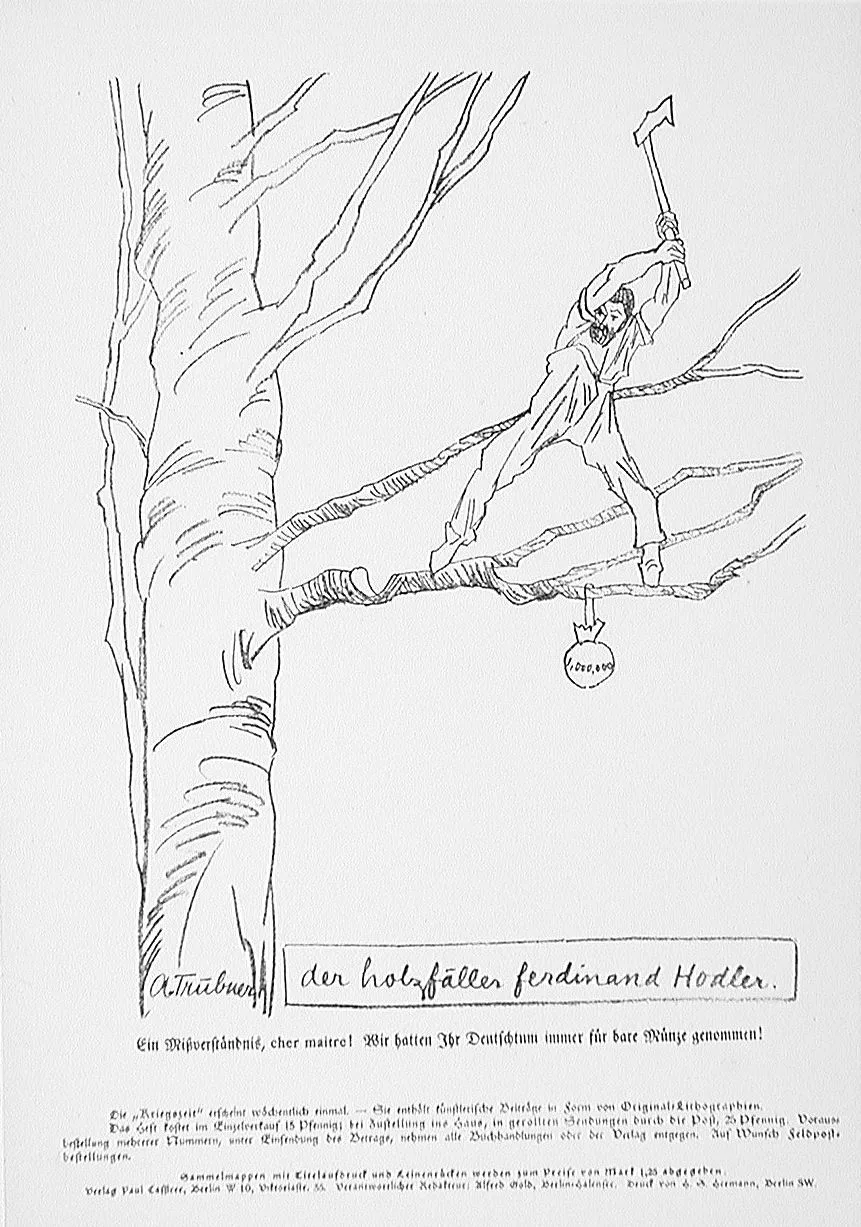 1,000,000
A. Trübner
der holzfäller ferdinand Hodler.
Ein Mißverständnis, cher maitre! Wir hatten Ihr Deutschtum immer für bare Münze genommen!
Die „Kriegszeit“ erscheint wöchentlich einmal. — Sie enthält künstlerische Beiträge in Form von Original-Lithographien.
Das Heft kostet im Einzelverkauf 15 Pfennig; bei Zustellung ins Haus, in gerollten Sendungen durch die Post, 25 Pfennig. Voraus-
bestellung mehrerer Nummern, unter Einsendung des Betrags, nehmen alle Buchhandlungen oder der Verlag entgegen. Auf Wunsch Feldpost-
bestellungen.
Sammelmappen mit Titelaufdruck und Leinenrücken werden zum Preise von Mark 1,25 abgegeben.
Verlag Paul Cassirer, Berlin W 10, Viktoriastr. 35. Verantwortlicher Redakteur: Alfred Gold, Berlin-Halensee. Druck von H. S. Hermann, Berlin SW.